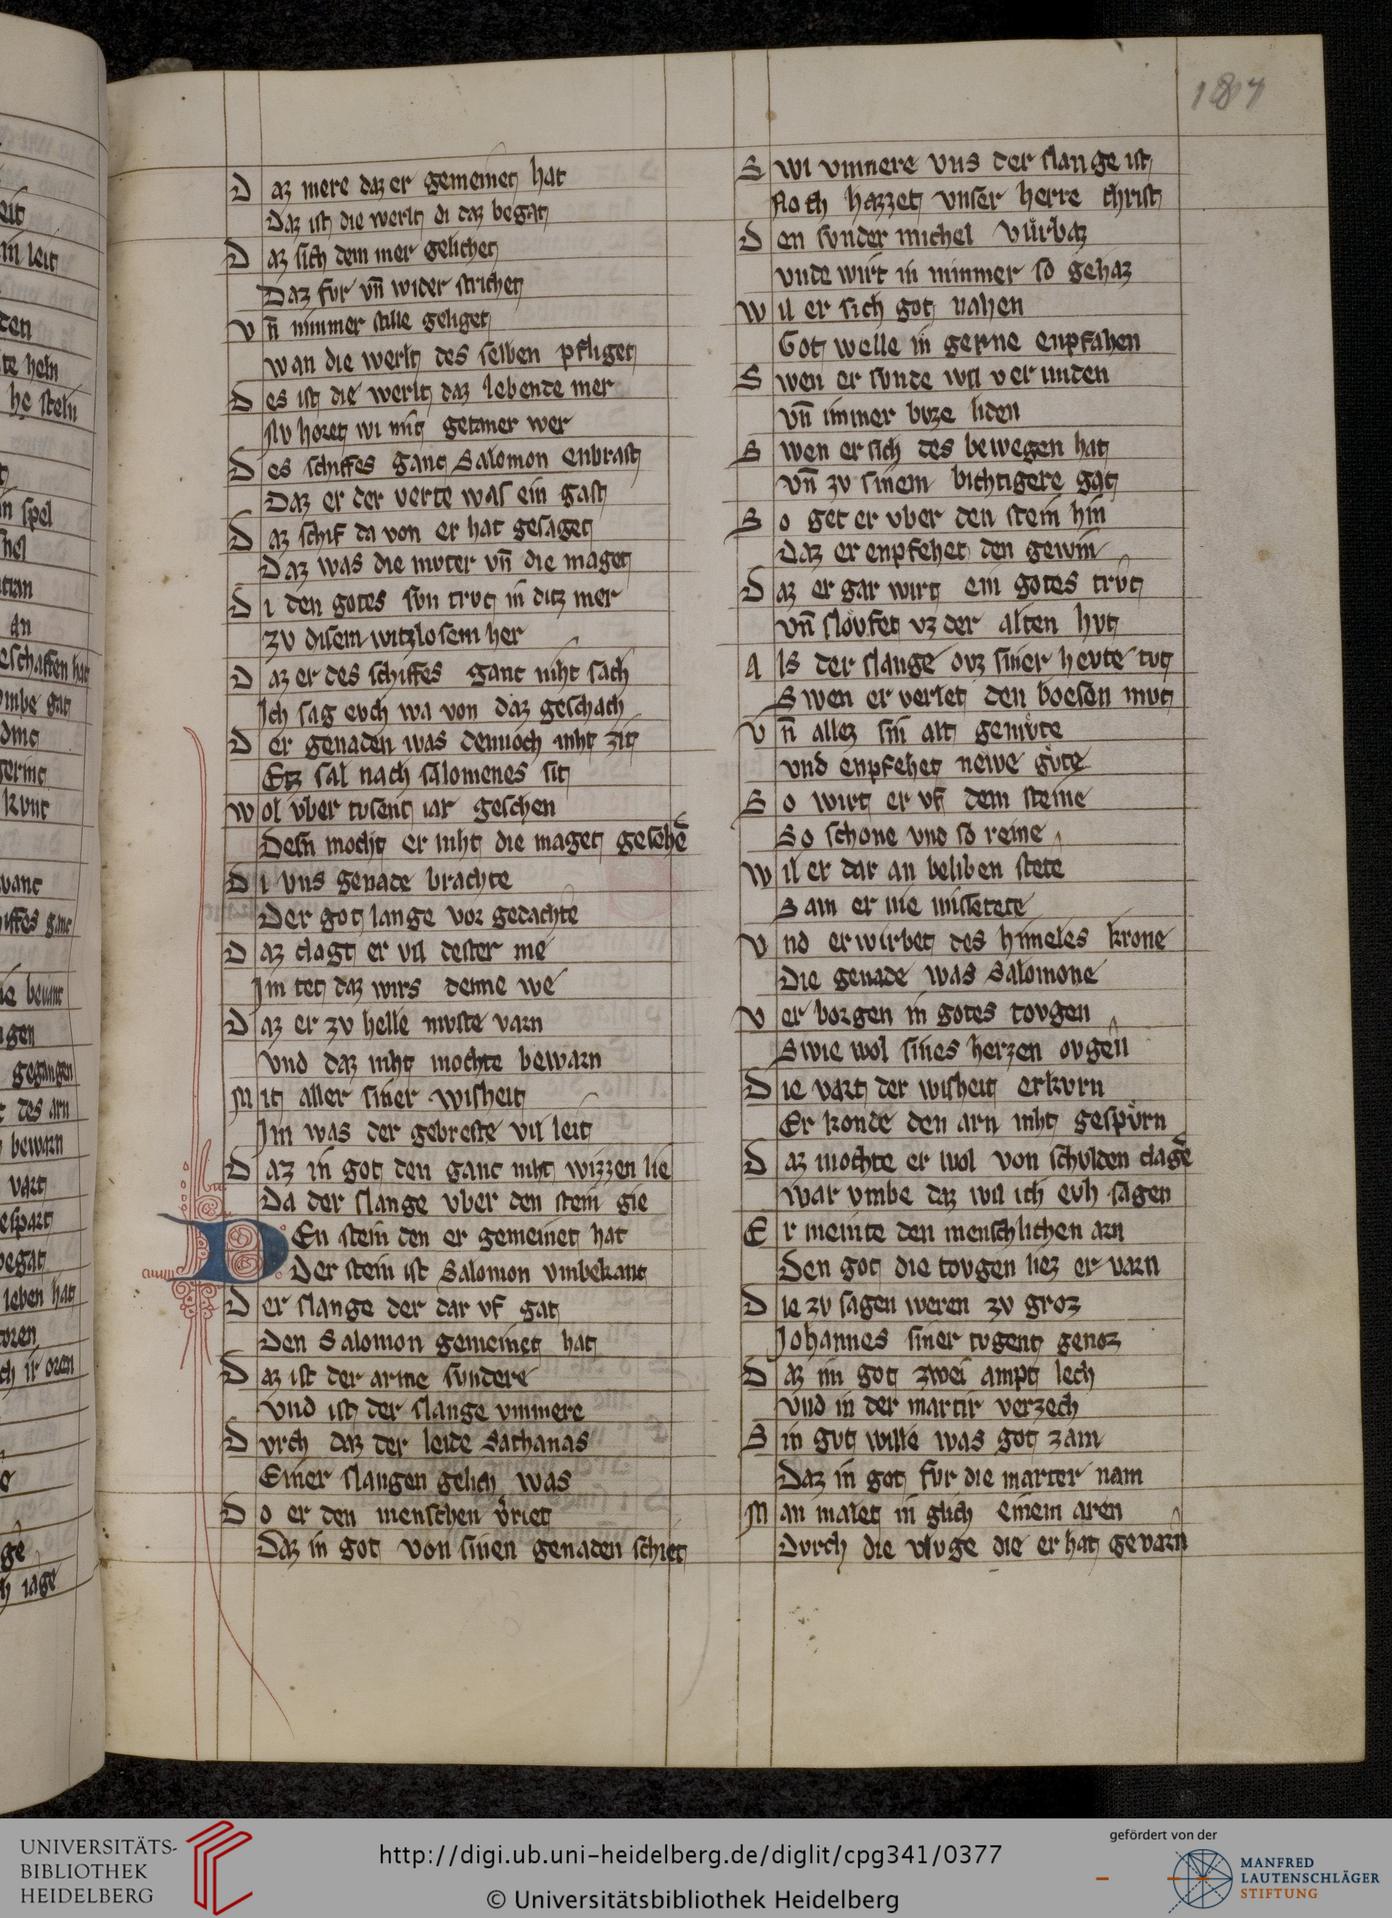 187
Daz mere daz er gemeinet hat
Daz ist die werlt di daz begat
Daz sich dem mer gelichet
Daz fur vn̄ wider strichet
Vn̄ nimmer stille geliget
wan die werlt des selben pfliget
Des ist die werlt daz lebende mer
Nv horet wi mit getzner wer
Des schiffes ganc Salomon enbrast
Daz er der verte was ein gast
Daz schif da von er hat gesaget
Daz was die mvter vn̄ die maget
Di den gotes svn trvc in ditz mer
zv disem witzlosem her
Daz er des schiffes ganc niht sach
Ich sag evch wa von daz geschach
Der genaden was dennoch niht zit
Etz sal nach salomenes sit
Wol vber tvsent iar geschen
Desn mocht er niht die maget gesehē
Di vns genade brachte
Der got lange vor gedachte
Daz clagt er vil dester me
Im tet daz wirs denne we
Daz er zv helle mvste varn
Vnd daz niht mochte bewarn
Mit aller siner wisheit
Im was der gebreste vil leit
Daz in got den ganc niht wizzen lie
Da der slange vber den stein gie
DEn stein den er gemeinet hat
Der stein ist Salomon vmbekant
Der slange der dar vf gat
Den Salomon gemeinet hat
Daz ist der arme svndere
Vnd ist der slange vnmere
Dvrch daz der leide Sathanas
Einer slangen gelich was
Do er den menschen v̓riet
Daz in got von sinen genaden schiet
Swi vnmere vns der slange ist
Noch hazzet vnser herre christ
Den svnder michel vůrbaz
vnde wirt in nimmer so gehaz
Wil er sich got nahen
Got welle in gerne enpfahen
Swen er svnde wil verunden
Vn̄ immer bvze liden
Swen er sich des bewegen hat
Vn̄ zv sinem bichtigere gat
So get er vber den stein hin
Daz er enpfehet den gewin
Daz er gar wirt ein gotes trvt
Vn̄ slovfet vz der alten hvt
Als der slange ovz siner hevte tvt
Swen er verlet den boesen mvt
Vn̄ allez sin alt gemvͤte
vnd enpfehet newe gvͤte
So wirt er vf dem steine
So schone vnd so reine
Wil er dar an beliben stete
Sam er nie missetete
Vnd erwirbet des himeles krone
Die genade was Salomone
Verborgen in gotes tovgen
Swie wol sines herzen ovgen
Die vart der wisheit erkvrn
Er konde den arn niht gespvͤrn
Daz mochte er wol von schvlden clagē
war vmbe daz wil ich evh sagen
Er meinte den menschlichen arn
Den got die tovgen liez ervarn
Die zv sagen weren zv groz
Johannes siner tvgent genoz
Daz im got zwei ampt lech
Vnd in der martir verzech
Sin gvt wille was got zam
Daz in got fvr die marter nam
Man malet in glich einem aren
Dvrch die vlvge die er hat gevarn
UNIVERSITÄTS-
BIBLIOTHEK
HEIDELBERG
http://digi.ub.uni-heidelberg.de/diglit/cpg341/0377
© Universitätsbibliothek Heidelberg
gefördert von der
MANFRED
LAUTENSCHLÄGER
STIFTUNG